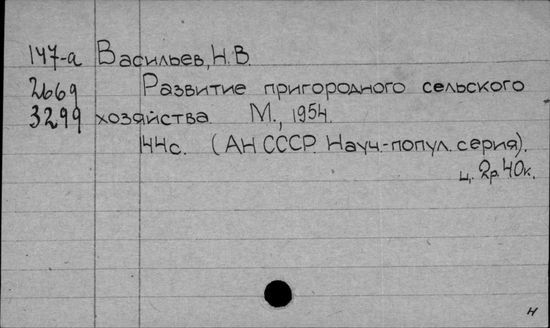 147-а Васильев, Н.В.
2669 Развитие пригородного сельского
3299 хозяйства. М., 1954.
144с. (АН СССР. Науч.-попул. серия).
ц. 2р.40к.
н